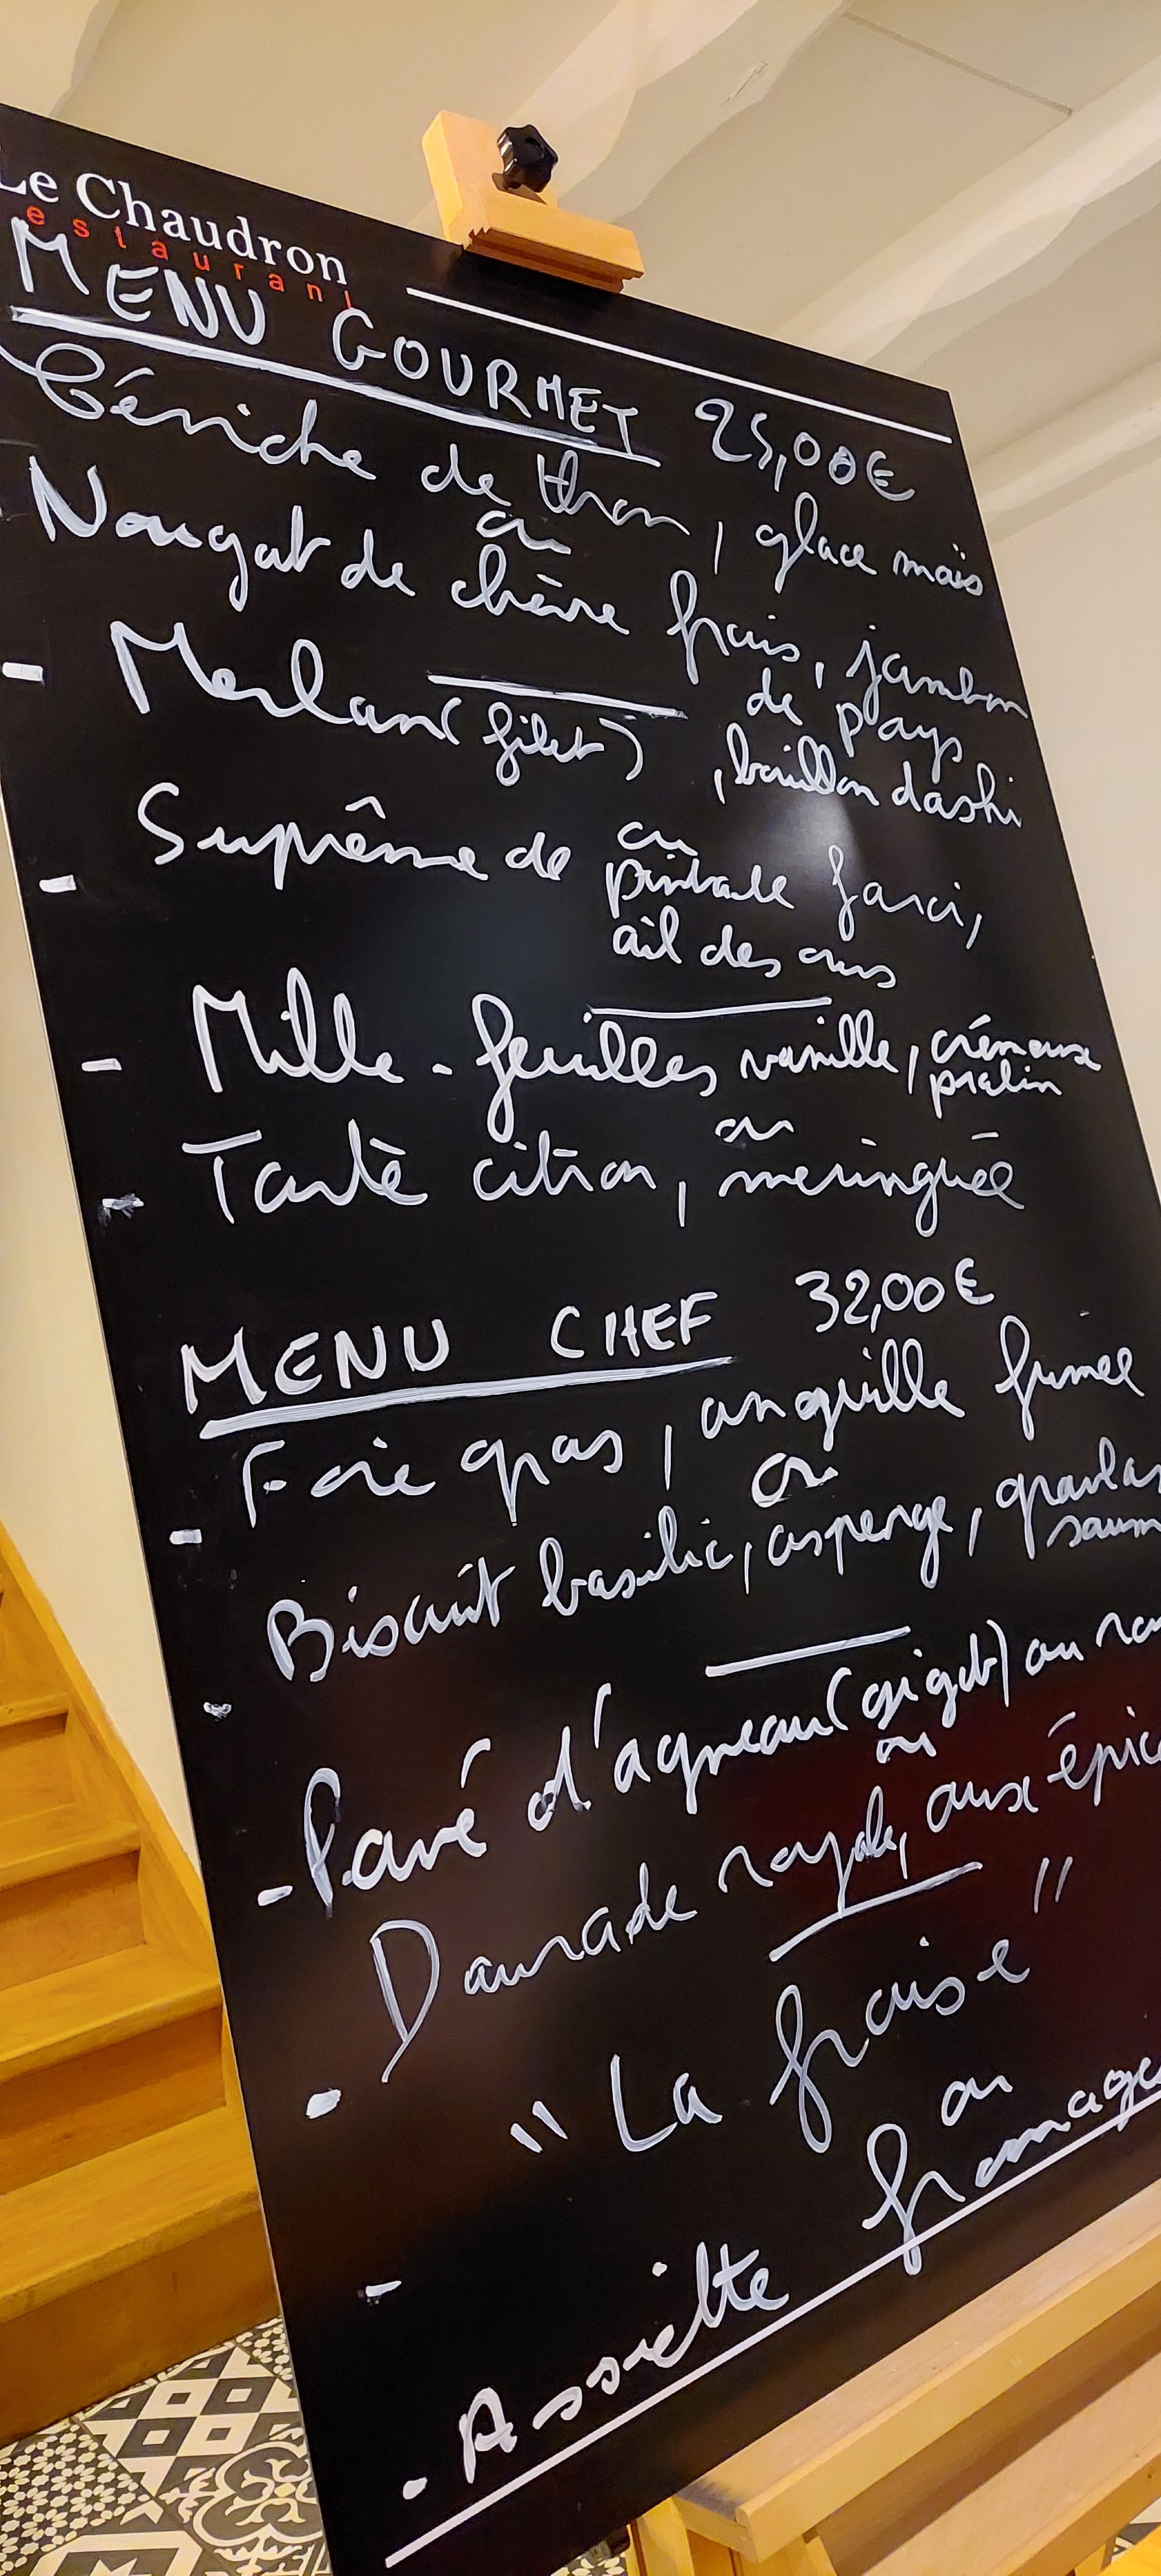 Le Chaudron
estaurant
MENU GOURMET 25,00€
Céviche de thon, glace maïs
ou
- Nougat de chèvre frais, jambon
de pays
- Merlan (filet), bouillon dashi
ou
- Suprême de pintade farci,
ail des ours
- Mille-feuilles vanille, crémeux
pralin
ou
- Tarte citron, meringuée
MENU CHEF 32,00€
- Foie gras, anguille fumée
ou
- Biscuit basilic, asperge, gravlax
saum
- Pavé d'agneau (gigot) au
ou
- Daurade royale, aux épice
- "La fraise"
ou
- Assiette fromage